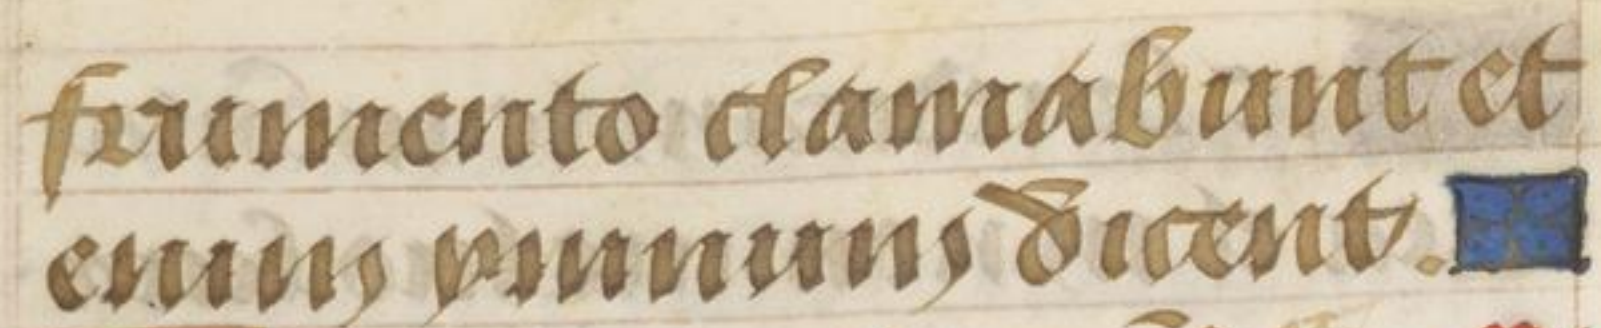 frumento clamabunt et
enim ymnum dicent.